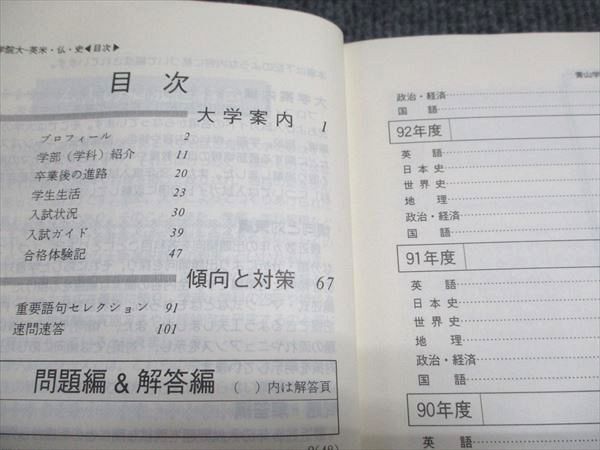 学院大−英米・仏・史◀目次▶
目次
大学案内 1
プロフィール 2
学部（学科）紹介 11
卒業後の進路 20
学生生活 23
入試状況 30
入試ガイド 39
合格体験記 47
傾向と対策 67
重要語句セレクション 91
速問速答 101
問題編 & 解答編 （ ）内は解答頁
9(48)
青山学
政治・経済
国語
92年度
英語
日本史
世界史
地理
政治・経済
国語
91年度
英語
日本史
世界史
地理
政治・経済
国語
90年度
英語